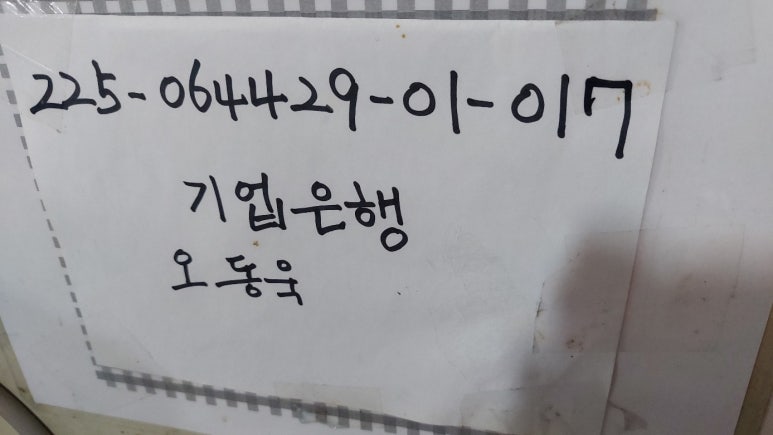 225-064429-01-017
기업은행
오동욱